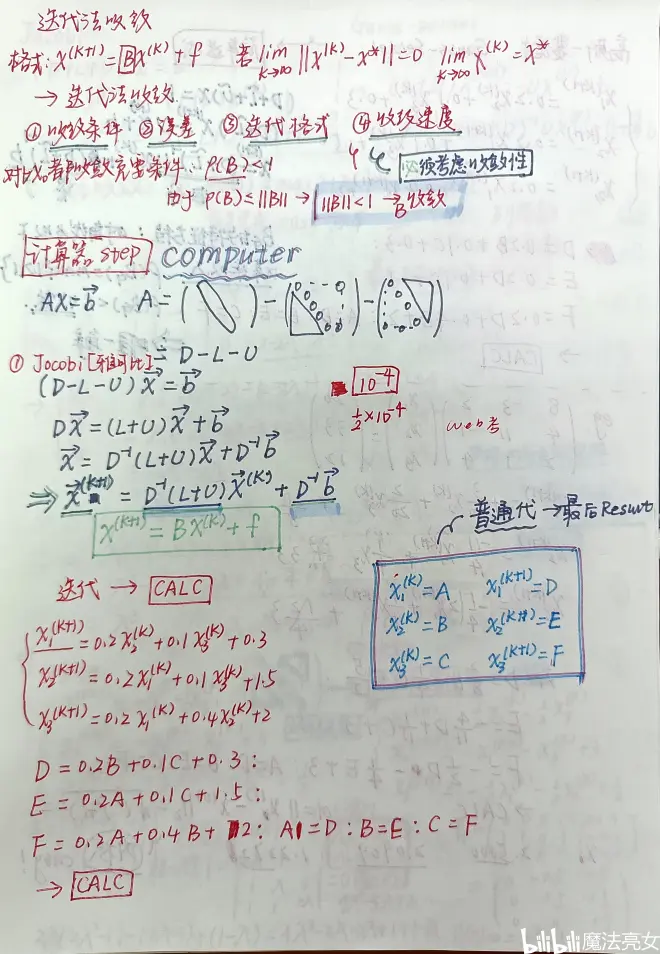 迭代法收敛
格式: X^(K+1) = BX^(K) + f 若 lim K→∞ ||X^(K) - X*|| = 0 lim K→∞ X^(K) = X*
→ 迭代法收敛.
① 收敛条件 ② 误差 ③ 迭代格式 ④ 收敛速度
必须考虑收敛性
对∀X₀都收敛充要条件: ρ(B)<1
由于 ρ(B)≤||B|| → ||B||<1 → B收敛
计算器 step computer
AX⃗=b⃗ A = ( ) - (0 0 0) - (0 0 0)
① Jocobi[雅可比] = D-L-U
(D-L-U)X⃗ = b⃗
10⁻⁴
DX⃗ = (L+U)X⃗ + b⃗
½×10⁻⁴ web考
X⃗ = D⁻¹(L+U)X⃗ + D⁻¹b⃗
⇒ X⃗^(K+1) = D⁻¹(L+U)X⃗^(K) + D⁻¹b⃗
X^(K+1) = BX^(K) + f
普通代 → 最后Result
X₁^(K) = A X₁^(K+1) = D
X₂^(K) = B X₂^(K+1) = E
X₃^(K) = C X₃^(K+1) = F
迭代 → CALC
X₁^(K+1) = 0.2X₂^(K) + 0.1X₃^(K) + 0.3
X₂^(K+1) = 0.2X₁^(K) + 0.1X₃^(K) + 1.5
X₃^(K+1) = 0.2X₁^(K) + 0.4X₂^(K) + 2
D = 0.2B + 0.1C + 0.3 :
E = 0.2A + 0.1C + 1.5 :
F = 0.2A + 0.4B + 2 : A = D : B = E : C = F
→ CALC
bilibili 魔法亮女